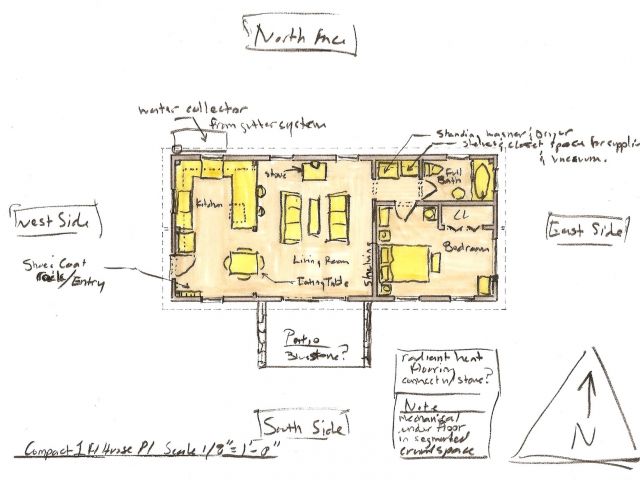 North Face
water collector
from gutter system
standing washer & Dryer
shelves, closet space for supplies
& vacuum.
stove
Full
Bath
Kitchen
CL
West Side
East Side
Bedroom
Living Room
Shelving
Shoe & Coat
Rack/Entry
Eating Table
Patio
Bluestone?
radiant heat
flooring
connect w/ stove?
Note
mechanical
under floor
in segmented
crawlspace
South Side
N
Compact 1 Scale 1/8"=1'-0"